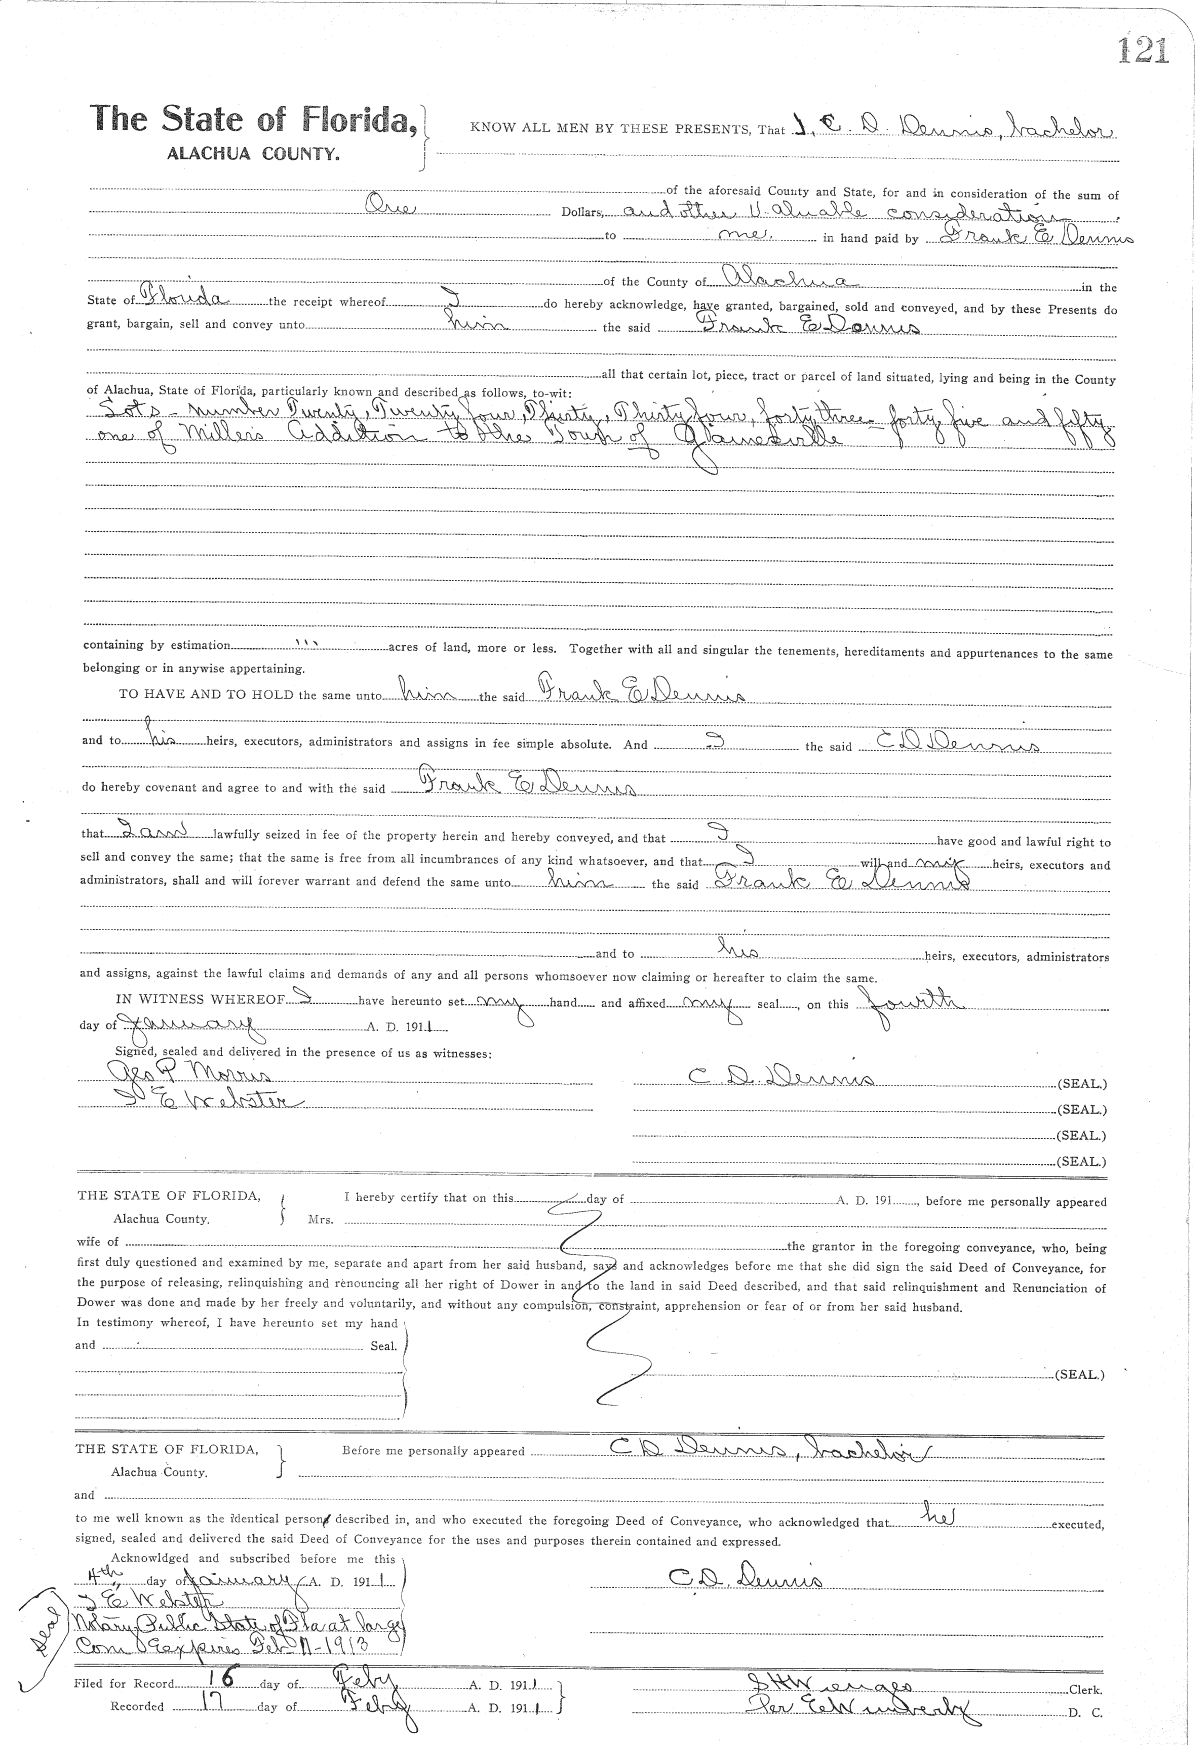 121
The State of Florida, KNOW ALL MEN BY THESE PRESENTS, That I, C. D. Dennis, bachelor
ALACHUA COUNTY.
of the aforesaid County and State, for and in consideration of the sum of
One Dollars, and other valuable consideration
to me in hand paid by Frank E Dennis
of the County of Alachua in the
State of Florida the receipt whereof I do hereby acknowledge, have granted, bargained, sold and conveyed, and by these Presents do
grant, bargain, sell and convey unto him the said Frank E Dennis
all that certain lot, piece, tract or parcel of land situated, lying and being in the County
of Alachua, State of Florida, particularly known and described as follows, to-wit:
Lots - number Twenty, Twenty four, Thirty, Thirty four, forty three - forty five and fifty
one of Miller's Addition to the Town of Gainesville
containing by estimation ''' acres of land, more or less. Together with all and singular the tenements, hereditaments and appurtenances to the same
belonging or in anywise appertaining.
TO HAVE AND TO HOLD the same unto him the said Frank E Dennis
and to his heirs, executors, administrators and assigns in fee simple absolute. And I the said C D Dennis
do hereby covenant and agree to and with the said Frank E Dennis
that I am lawfully seized in fee of the property herein and hereby conveyed, and that I have good and lawful right to
sell and convey the same; that the same is free from all incumbrances of any kind whatsoever, and that I will and my heirs, executors and
administrators, shall and will forever warrant and defend the same unto him the said Frank E Dennis
and to his heirs, executors, administrators
and assigns, against the lawful claims and demands of any and all persons whomsoever now claiming or hereafter to claim the same.
IN WITNESS WHEREOF I have hereunto set my hand and affixed my seal, on this fourth
day of January A. D. 1911
Signed, sealed and delivered in the presence of us as witnesses:
Geo P Morris C. D. Dennis (SEAL.)
I E Webster (SEAL.)
(SEAL.)
(SEAL.)
THE STATE OF FLORIDA, I hereby certify that on this day of A. D. 191, before me personally appeared
Alachua County. Mrs.
wife of the grantor in the foregoing conveyance, who, being
first duly questioned and examined by me, separate and apart from her said husband, says and acknowledges before me that she did sign the said Deed of Conveyance, for
the purpose of releasing, relinquishing and renouncing all her right of Dower in and to the land in said Deed described, and that said relinquishment and Renunciation of
Dower was done and made by her freely and voluntarily, and without any compulsion, constraint, apprehension or fear of or from her said husband.
In testimony whereof, I have hereunto set my hand
and Seal.
(SEAL.)
THE STATE OF FLORIDA, Before me personally appeared C D Dennis, bachelor
Alachua County.
and
to me well known as the identical person described in, and who executed the foregoing Deed of Conveyance, who acknowledged that he executed,
signed, sealed and delivered the said Deed of Conveyance for the uses and purposes therein contained and expressed.
Acknowldged and subscribed before me this
4th day of January A. D. 1911 C. D. Dennis
I E Webster
Notary Public State of Fla at large
Seal
Com Eexpires Feb 11-1913
Filed for Record 16 day of Feby A. D. 1911 S H Wienges Clerk.
Recorded 17 day of Feby A. D. 1911 Per E Wimberly D. C.